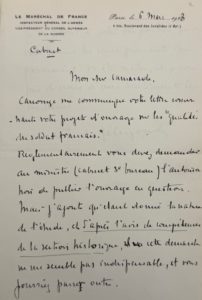 LE MARÉCHAL DE FRANCE
INSPECTEUR GÉNÉRAL DE L'ARMÉE
VICE-PRÉSIDENT DU CONSEIL SUPÉRIEUR
DE LA GUERRE
Paris, le 6 Mars
4 bis, Boulevard des Invalides
Cabinet
Mon cher camarade,
me communique votre lettre
votre projet d'ouvrage sur les
soldat français".
Réglementairement vous devez demander
au ministre (Cabinet bureau) l'autorisa
tion de publier l'ouvrage en question.
Mais j'ajoute qu'étant donné la nature
de l'étude, et d'après l'avis de
la section historique, cette demande
ne me semble pas indispensable, et vous
pourriez passer outre.